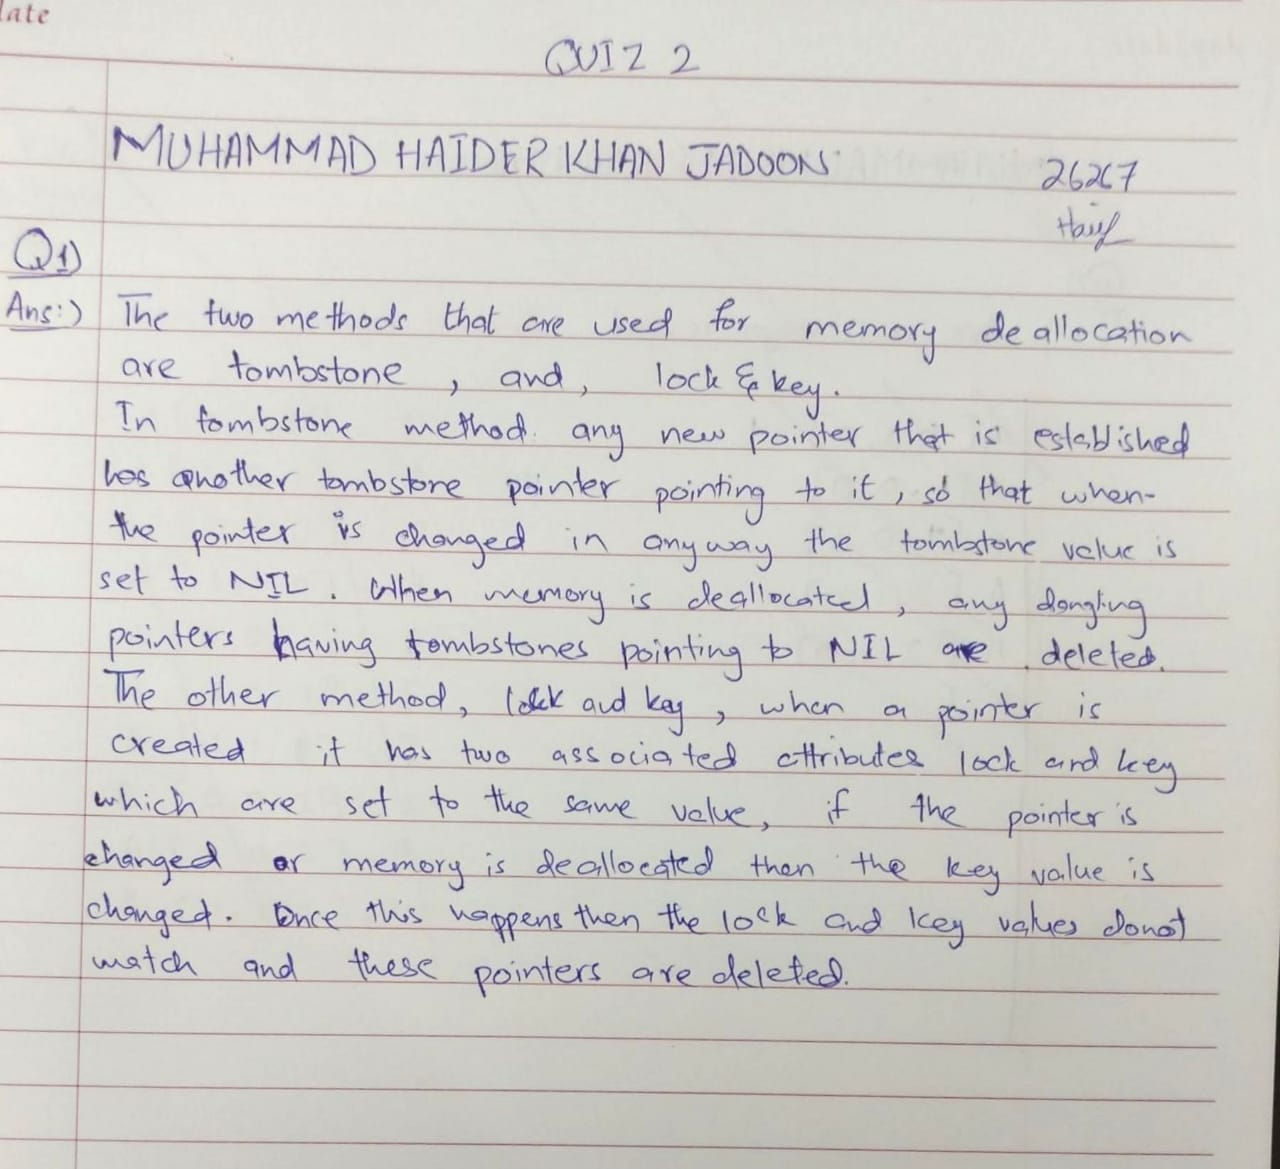 late
QUIZ 2
MUHAMMAD HAIDER KHAN JADOON
26267
Q1)
Ans:) The two methods that are used for memory deallocation
are tombstone , and , lock & key.
In tombstone method any new pointer that is established
has another tombstone pointer pointing to it, so that when-
the pointer is changed in anyway the tombstone value is
set to NIL. When memory is deallocated, any dangling
pointers having tombstones pointing to NIL are deleted.
The other method, lock and key, when a pointer is
created it has two associated attributes lock and key
which are set to the same value, if the pointer is
changed or memory is deallocated then the key value is
changed. Once this happens then the lock and key values donot
match and these pointers are deleted.